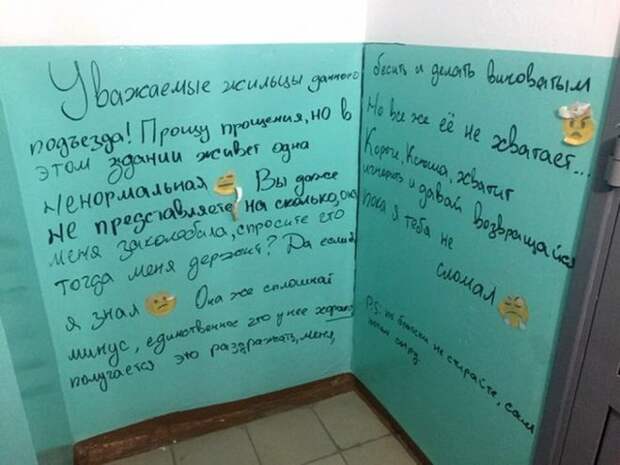 Уважаемые жильцы данного
подъезда! Прошу прощения, но в
этом здании живет одна
ненормальная Вы даже
не представляете на сколько, она
меня заколебала, спросите что
тогда меня держит? Да если б
я знал Она же сплошной
минус, единственное что у нее хорошо
получается это раздражать меня,
бесить и делать виноватым
Но все же её не хватает...
Короче, Ксюша, хватит
и давай возвращайся
пока я тебя не
сломал
P.S: не стирайте, сам